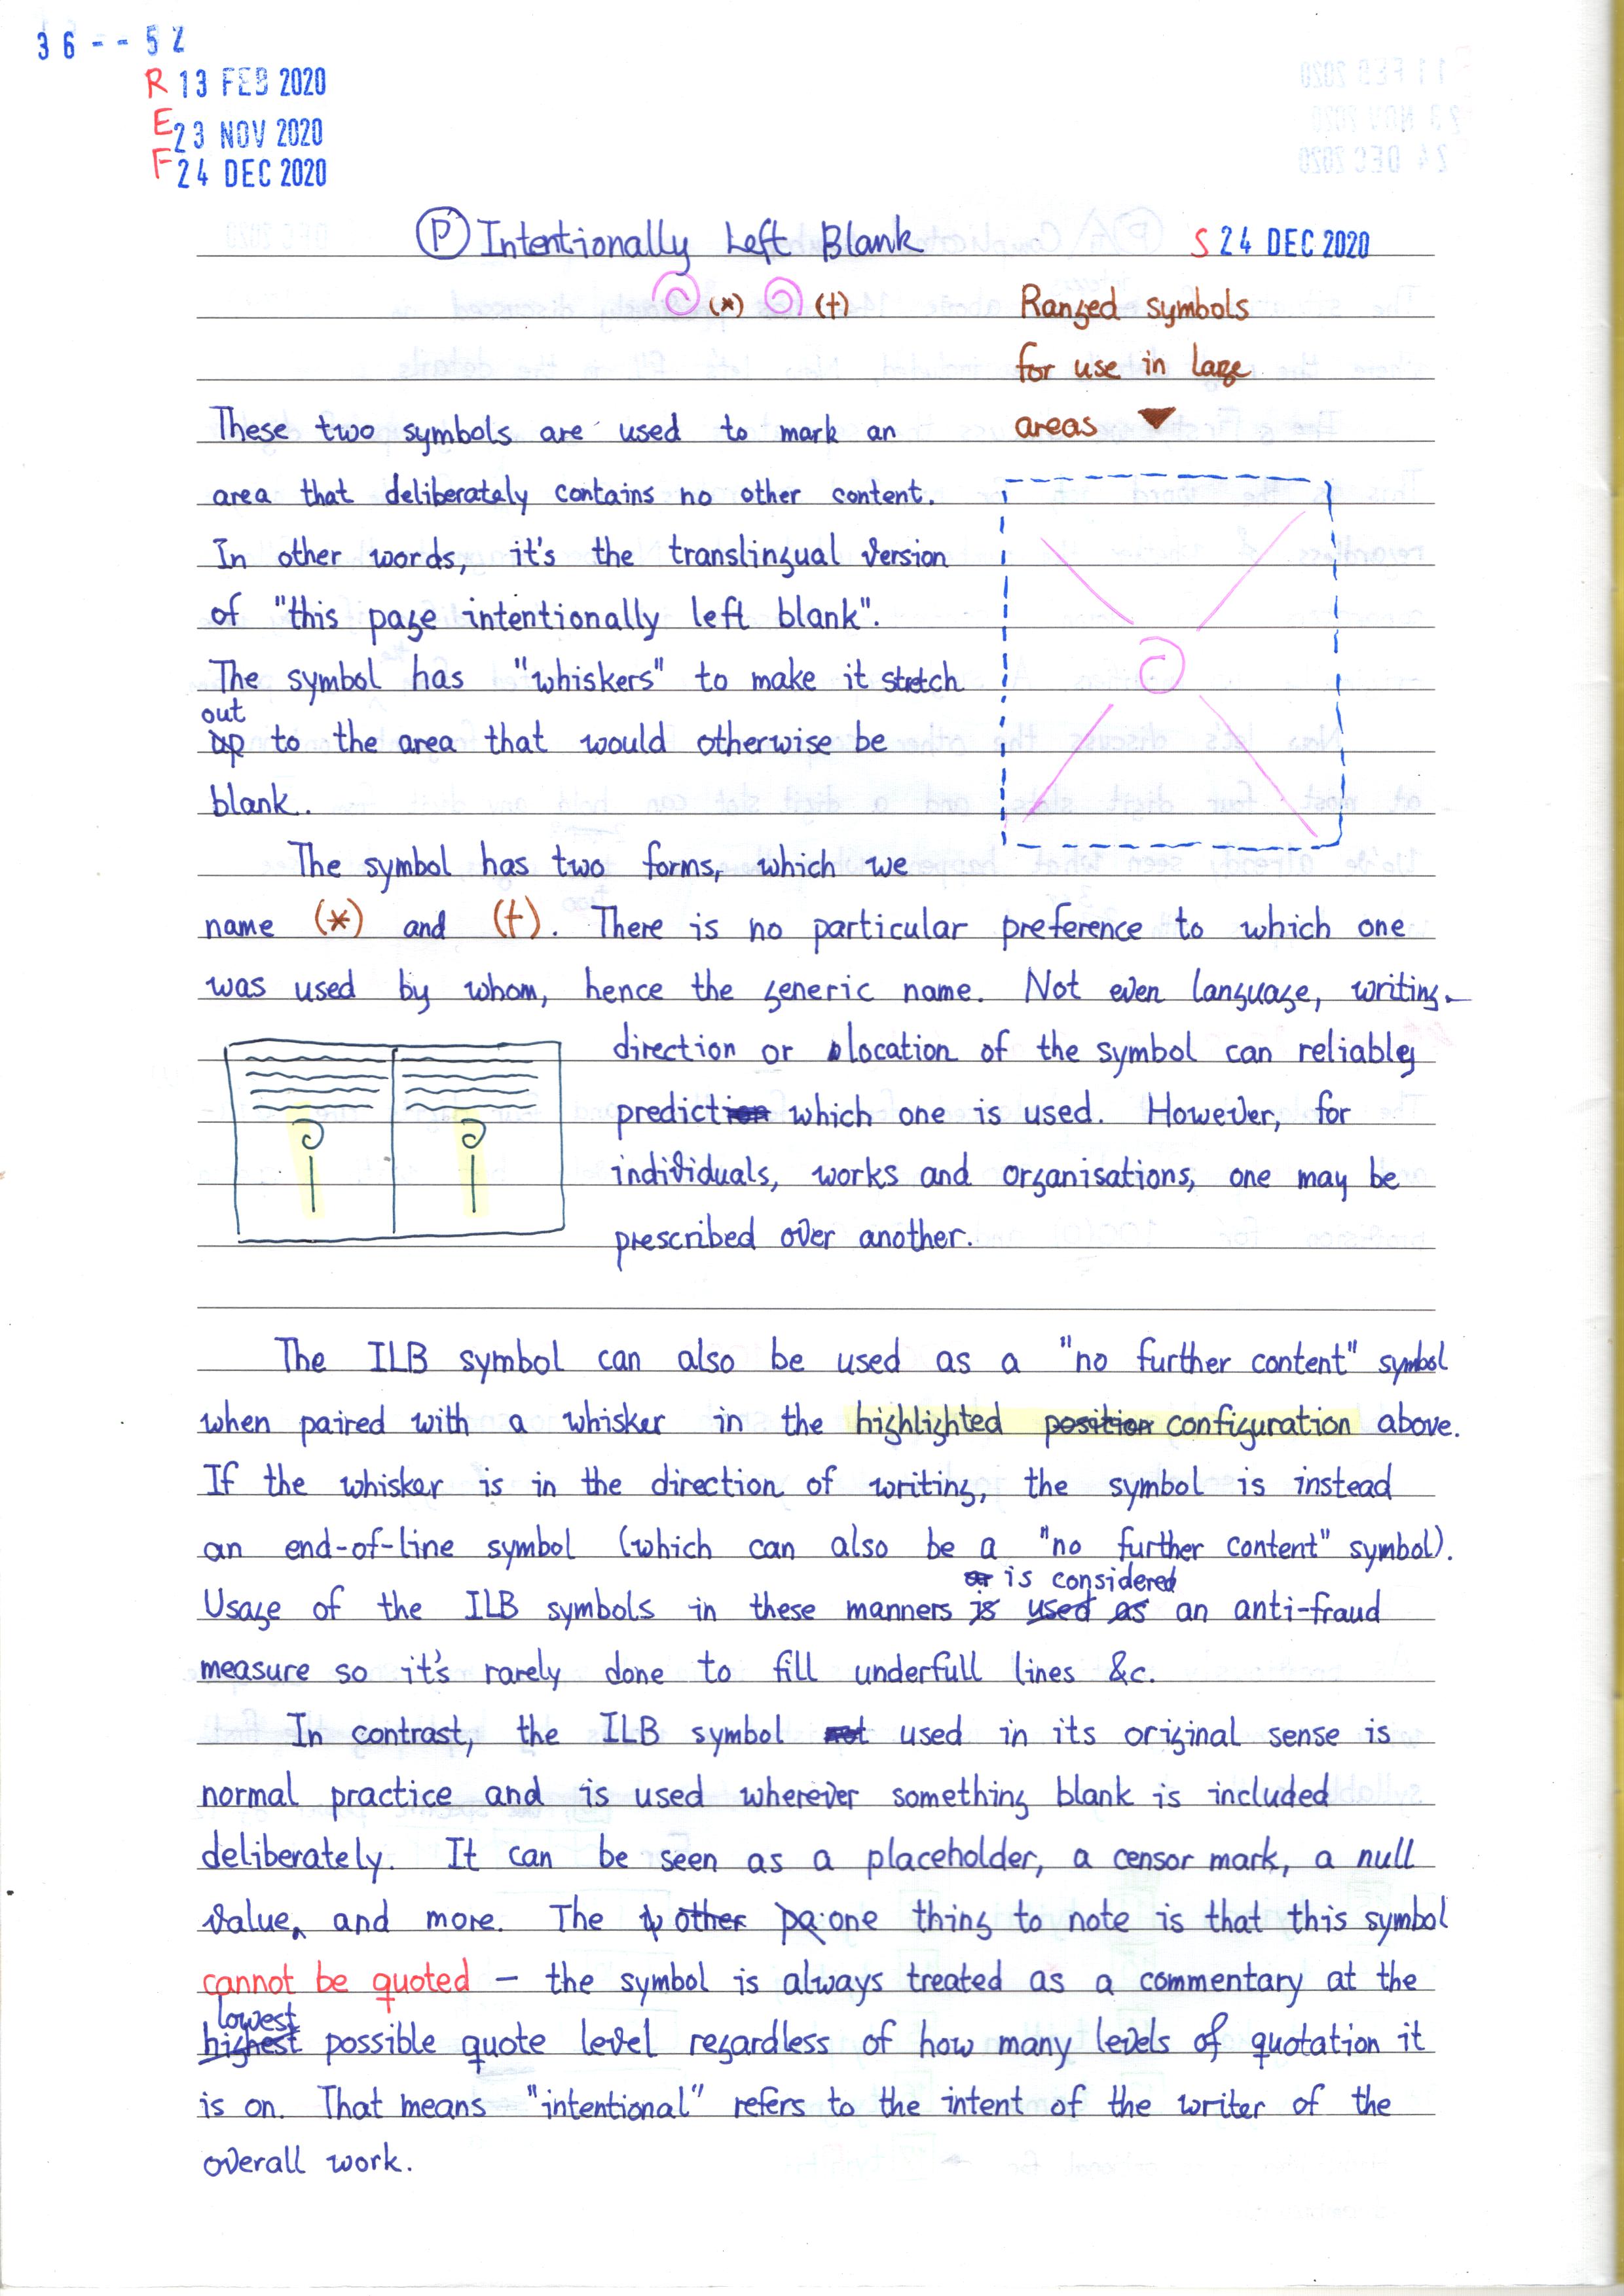 36--52
R 13 FEB 2020
E 23 NOV 2020
F 24 DEC 2020
Ⓟ Intentionally Left Blank S 24 DEC 2020
(*) (†)
Ranged symbols
for use in large
areas ▼
These two symbols are used to mark an
area that deliberately contains no other content.
In other words, it's the translingual version
of "this page intentionally left blank".
The symbol has "whiskers" to make it stretch
out
up to the area that would otherwise be
blank.
The symbol has two forms, which we
name (*) and (†). There is no particular preference to which one
was used by whom, hence the generic name. Not even language, writing
direction or location of the symbol can reliably
prediction which one is used. However, for
individuals, works and organisations, one may be
prescribed over another.
The ILB symbol can also be used as a "no further content" symbol
when paired with a whisker in the highlighted position configuration above.
If the whisker is in the direction of writing, the symbol is instead
an end-of-line symbol (which can also be a "no further content" symbol).
or is considered
Usage of the ILB symbols in these manners is used as an anti-fraud
measure so it's rarely done to fill underfull lines &c.
In contrast, the ILB symbol not used in its original sense is
normal practice and is used wherever something blank is included
deliberately. It can be seen as a placeholder, a censor mark, a null
value, and more. The other pa one thing to note is that this symbol
cannot be quoted – the symbol is always treated as a commentary at the
lowest
highest possible quote level regardless of how many levels of quotation it
is on. That means "intentional" refers to the intent of the writer of the
overall work.